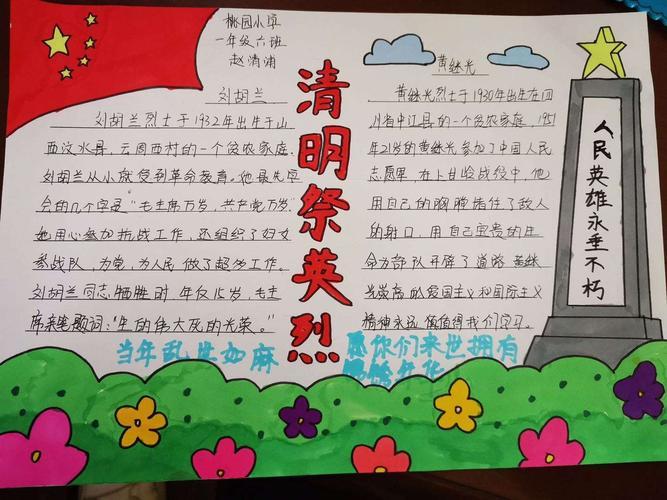 桃园小学
一年级六班
赵清浦
刘胡兰
刘胡兰烈士于1932年出生于山
西汶水县，云周西村的一个贫农家庭，
刘胡兰从小就受到革命教育。她最先学
会的几个字是“毛主席万岁，共产党万岁”
她用心参加抗战工作，还组织了妇女
参战队，为党，为人民做了超多工作。
刘胡兰同志牺牲时，年仅15岁，毛主
席亲笔题词：“生的伟大死的光荣。”
当年乱世如麻
清明祭英烈
黄继光
黄继光烈士于1930年出生在四
川省中江县的一个贫农家庭，1951
年21岁的黄继光参加了中国人民
志愿军，在上甘岭战役中，他
用自己的胸膛挡住了敌人
的射口，用自己宝贵的生
命为部队开辟了道路 黄继
光崇高的爱国主义和国际主义
精神永远值得我们学习。
愿你们来世拥有
年华
人民英雄永垂不朽